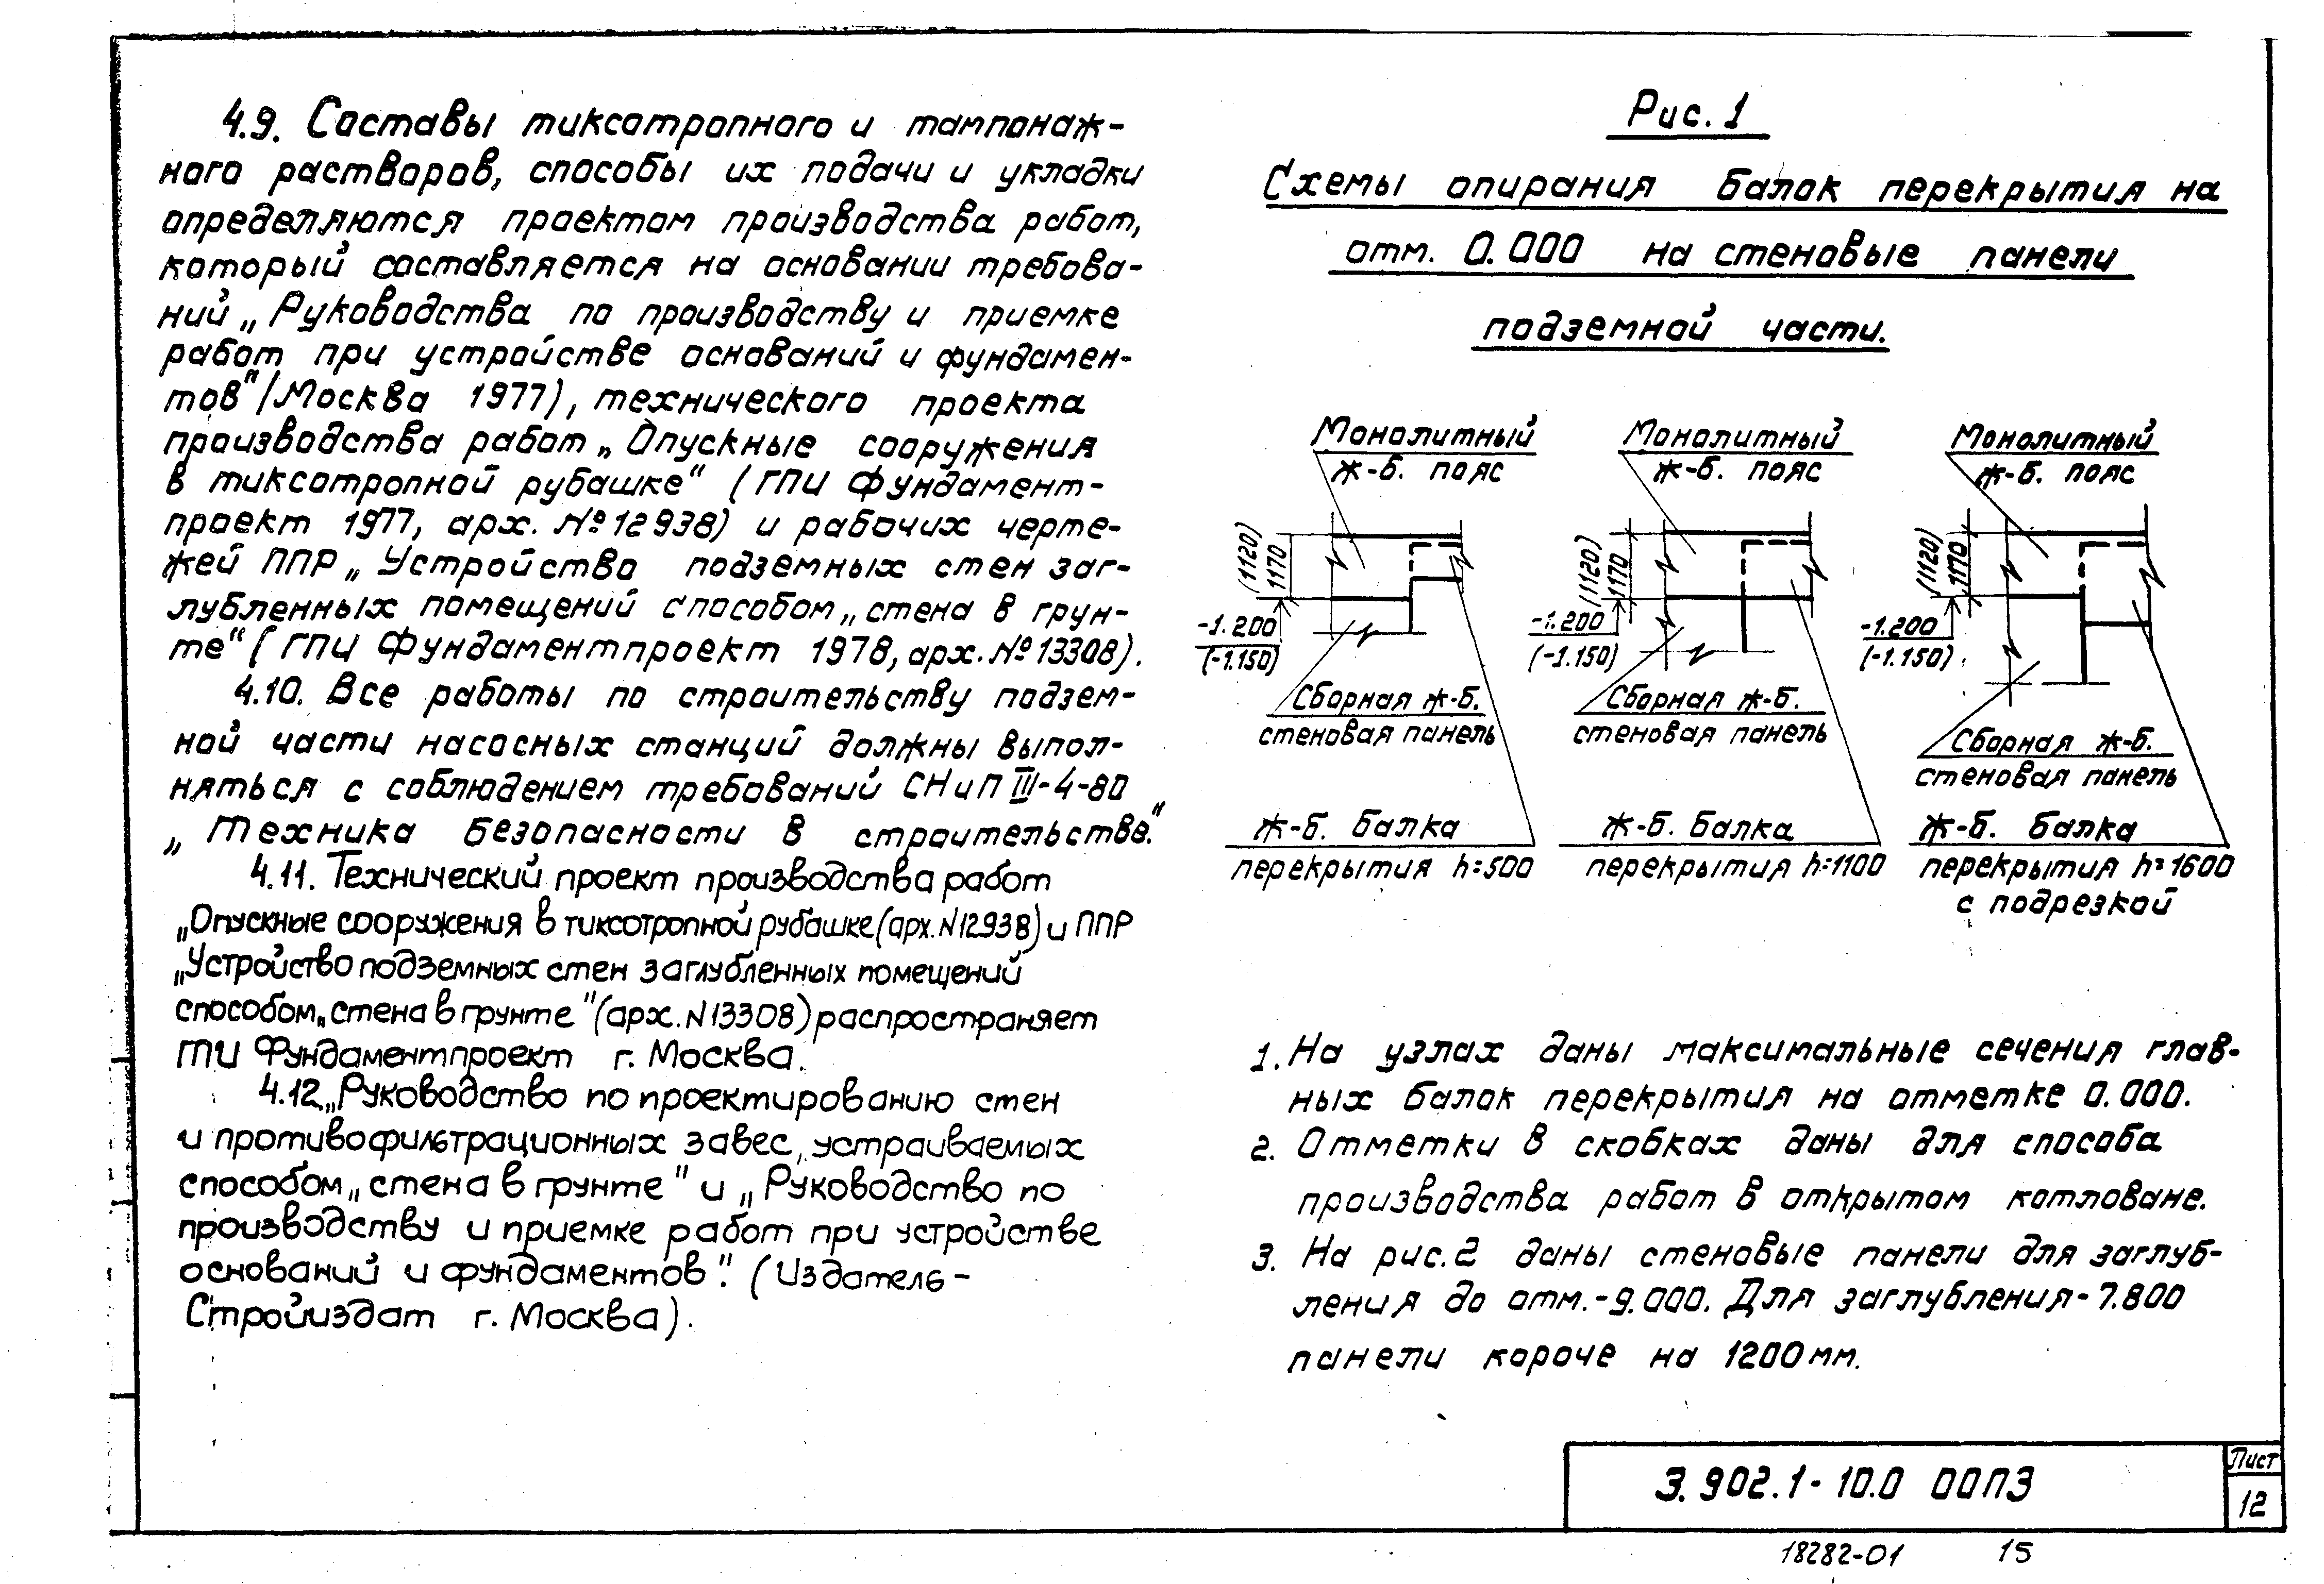 4.9. Составы тиксотропного и тампонаж-
ного растворов, способы их подачи и укладки
определяются проектом производства работ,
который составляется на основании требова-
ний „Руководства по производству и приемке
работ при устройстве оснований и фундамен-
тов" /Москва 1977), технического проекта
производства работ „Опускные сооружения
в тиксотропной рубашке" (ГПИ Фундамент-
проект 1977, арх. №12938) и рабочих черте-
жей ППР „Устройство подземных стен заг-
лубленных помещений способом „стена в грун-
те" (ГПИ Фундаментпроект 1978, арх. №13308).
4.10. Все работы по строительству подзем-
ной части насосных станций должны выпол-
няться с соблюдением требований СНиП III-4-80
„Техника безопасности в строительстве."
4.11. Технический проект производства работ
„Опускные сооружения в тиксотропной рубашке (арх. N12938) и ППР
„Устройство подземных стен заглубленных помещений
способом „стена в грунте" (арх. N13308) распространяет
ГПИ Фундаментпроект г. Москва.
4.12. „Руководство по проектированию стен
и противофильтрационных завес, устраиваемых
способом „стена в грунте" и „Руководство по
производству и приемке работ при устройстве
оснований и фундаментов". (Издатель-
Стройиздат г. Москва).
Рис. 1
Схемы опирания балок перекрытия на
отм. 0.000 на стеновые панели
подземной части.
Монолитный
ж-б. пояс
(1120)
1170
-1.200
(-1.150)
Сборная ж-б.
стеновая панель
ж-б. балка
перекрытия h=500
Монолитный
ж-б. пояс
(1120)
1170
-1.200
(-1.150)
Сборная ж-б.
стеновая панель
ж-б. балка
перекрытия h=1100
Монолитный
ж-б. пояс
(1120)
1170
-1.200
(-1.150)
Сборная ж-б.
стеновая панель
ж-б. балка
перекрытия h=1600
с подрезкой
1. На узлах даны максимальные сечения глав-
ных балок перекрытия на отметке 0.000.
2. Отметки в скобках даны для способа
производства работ в открытом котловане.
3. На рис. 2 даны стеновые панели для заглуб-
ления до отм. -9.000. Для заглубления -7.800
панели короче на 1200мм.
3.902.1-10.0 00ПЗ
Лист
12
18282-01 15